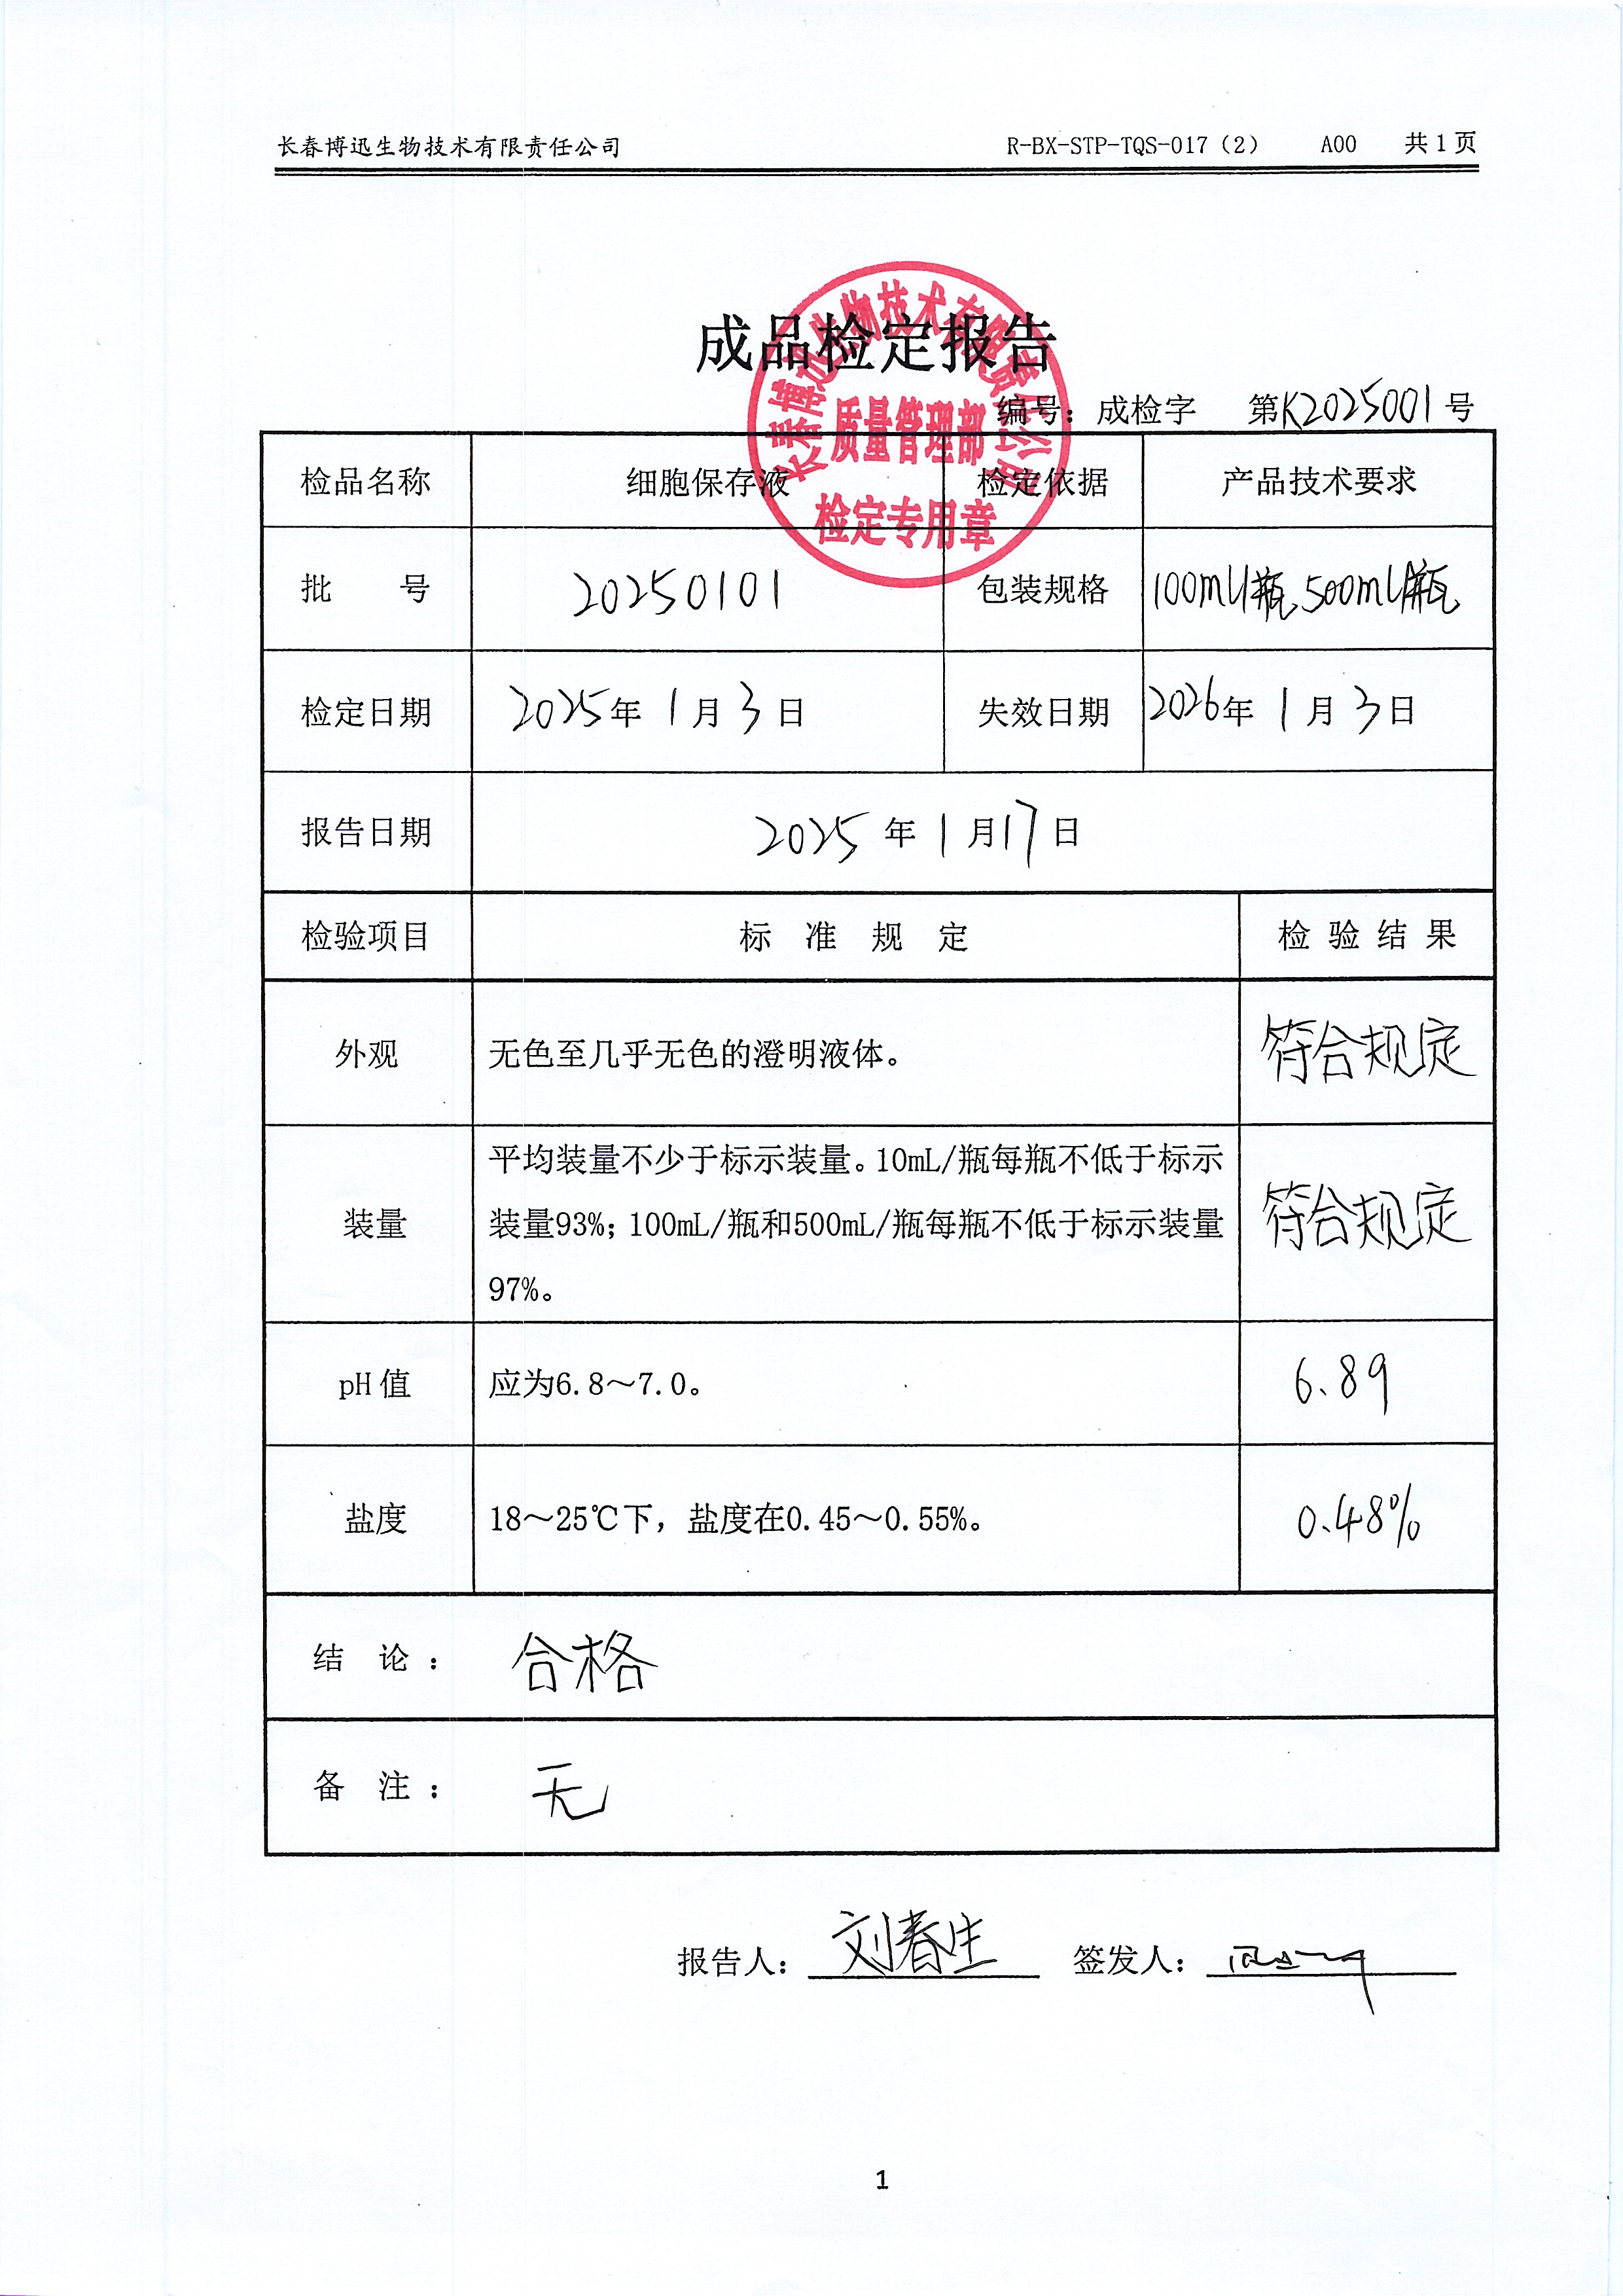 长春博迅生物技术有限责任公司 R-BX-STP-TQS-017（2） A00 共1页
成品检定报告
长春博迅生物技术有限责任公司
质量管理部
检定专用章
编号：成检字 第K2025001号
检品名称 细胞保存液 检定依据 产品技术要求
批 号 20250101 包装规格 100ml/瓶、500ml/瓶
检定日期 2025年1月3日 失效日期 2026年1月3日
报告日期 2025年1月17日
检验项目 标 准 规 定 检 验 结 果
外观 无色至几乎无色的澄明液体。 符合规定
平均装量不少于标示装量。10mL/瓶每瓶不低于标示
装量 装量93%；100mL/瓶和500mL/瓶每瓶不低于标示装量 符合规定
97%。
pH值 应为6.8～7.0。 6.89
盐度 18～25℃下，盐度在0.45～0.55%。 0.48%
结 论： 合格
备 注： 无
报告人：刘春生 签发人：
1